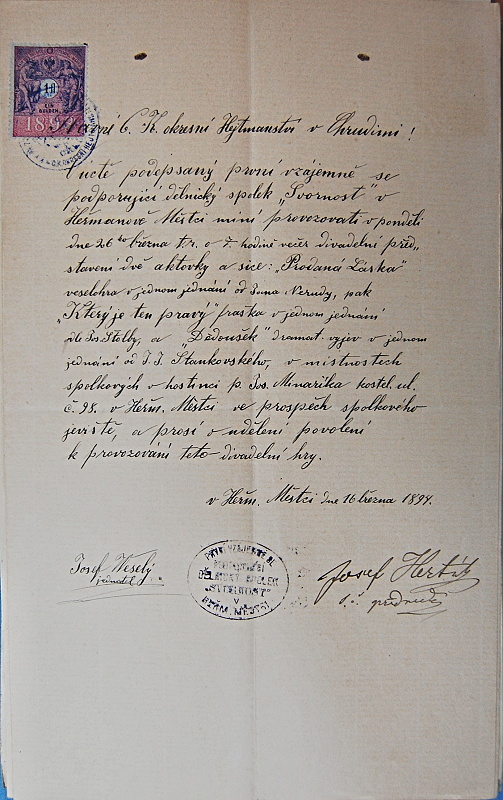 Slavné C. K. okresní Hejtmanství v Chrudimi!
V úctě podepsaný první vzájemně se
podporující dělnický spolek „Svornost" v
Heřmanově Městci míní provozovati v pondělí
dne 26 ho března t.r. o 7. hodině večer divadelní před„
stavení dvě aktovky a sice: „Prodaná Láska"
veselohra v jednom jednání od Jana Nerudy, pak
„Který je ten pravý" fraška v jednom jednání
dle Jos. Štolby, a "Dědoušek" dramat. výjev v jednom
jednání od J. J. Stankovského, v místnostech
spolkových v hostinci p. Jos. Minaříka kostel. ul.
č. 98. v Heřm. Městci ve prospěch spolkového
jeviště, a prosí o udělení povolení
k provozování této divadelní hry.
v Heřm. Městci dne 16 března 1894.
Josef Weselý
jednatel
Josef
t.č. předseda
PRVNÍ VZÁJEMNĚ SE
PODPORUJÍCÍ
DĚLNICKÝ SPOLEK
„SVORNOST"
V
HEŘM. MĚSTCI